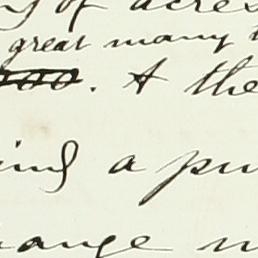 of acres
great many
000. A the
ing a pu
ange